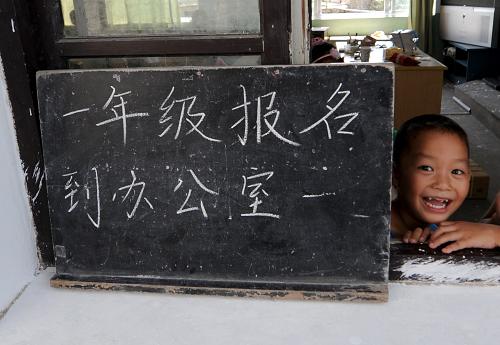 一年级报名
到办公室一